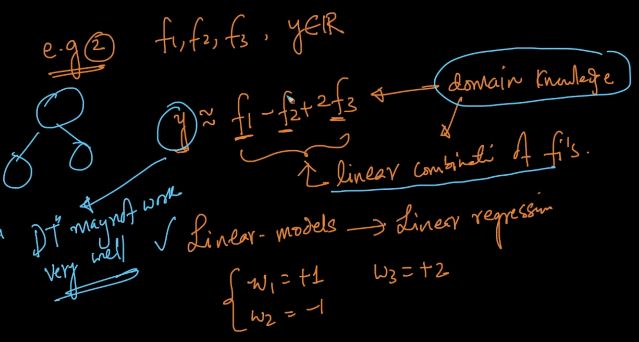 e.g ② f₁, f₂, f₃, y∈ℝ
y ≈ f₁ - f₂ + 2f₃ ← domain knowledge
linear combinati of fᵢ's.
DT may not work very well
✓ Linear-models → Linear regression
w₁ = +1 w₃ = +2
w₂ = -1